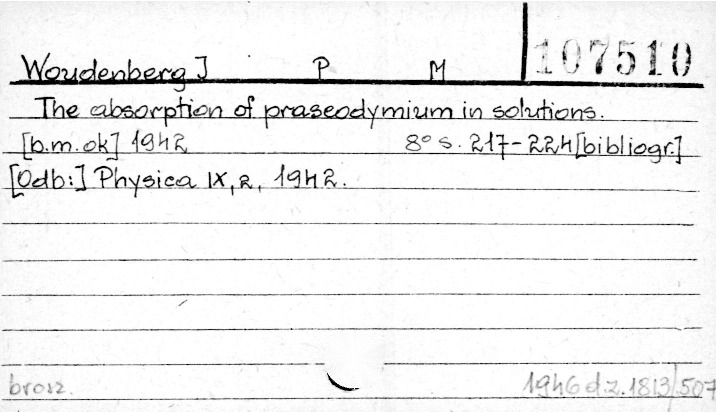 Woudenberg J P M 107510
The absorption of praseodymium in solutions.
[b.m.ok] 1942 8° s. 217-224 [bibliogr.]
[Odb:] Physica IX, 2, 1942.
brosz. 1946 d.z. 1813/507